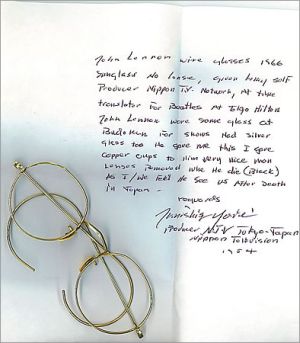 John Lennon wire glasses 1966
Sunglass No Lense, given to my self
Producer Nippon T.V. Network, At time
translator for Beatles At Tokyo Hilton
John Lennon wore some glass at
Budokun for shows Had silver
glass too He gave me this I gave
copper cups to him very nice man
Lenses Removed when He die (Black)
As I/we Felt He see us After death
in Japan -
regards
Producer NTV Tokyo-Japan
Nippon Television